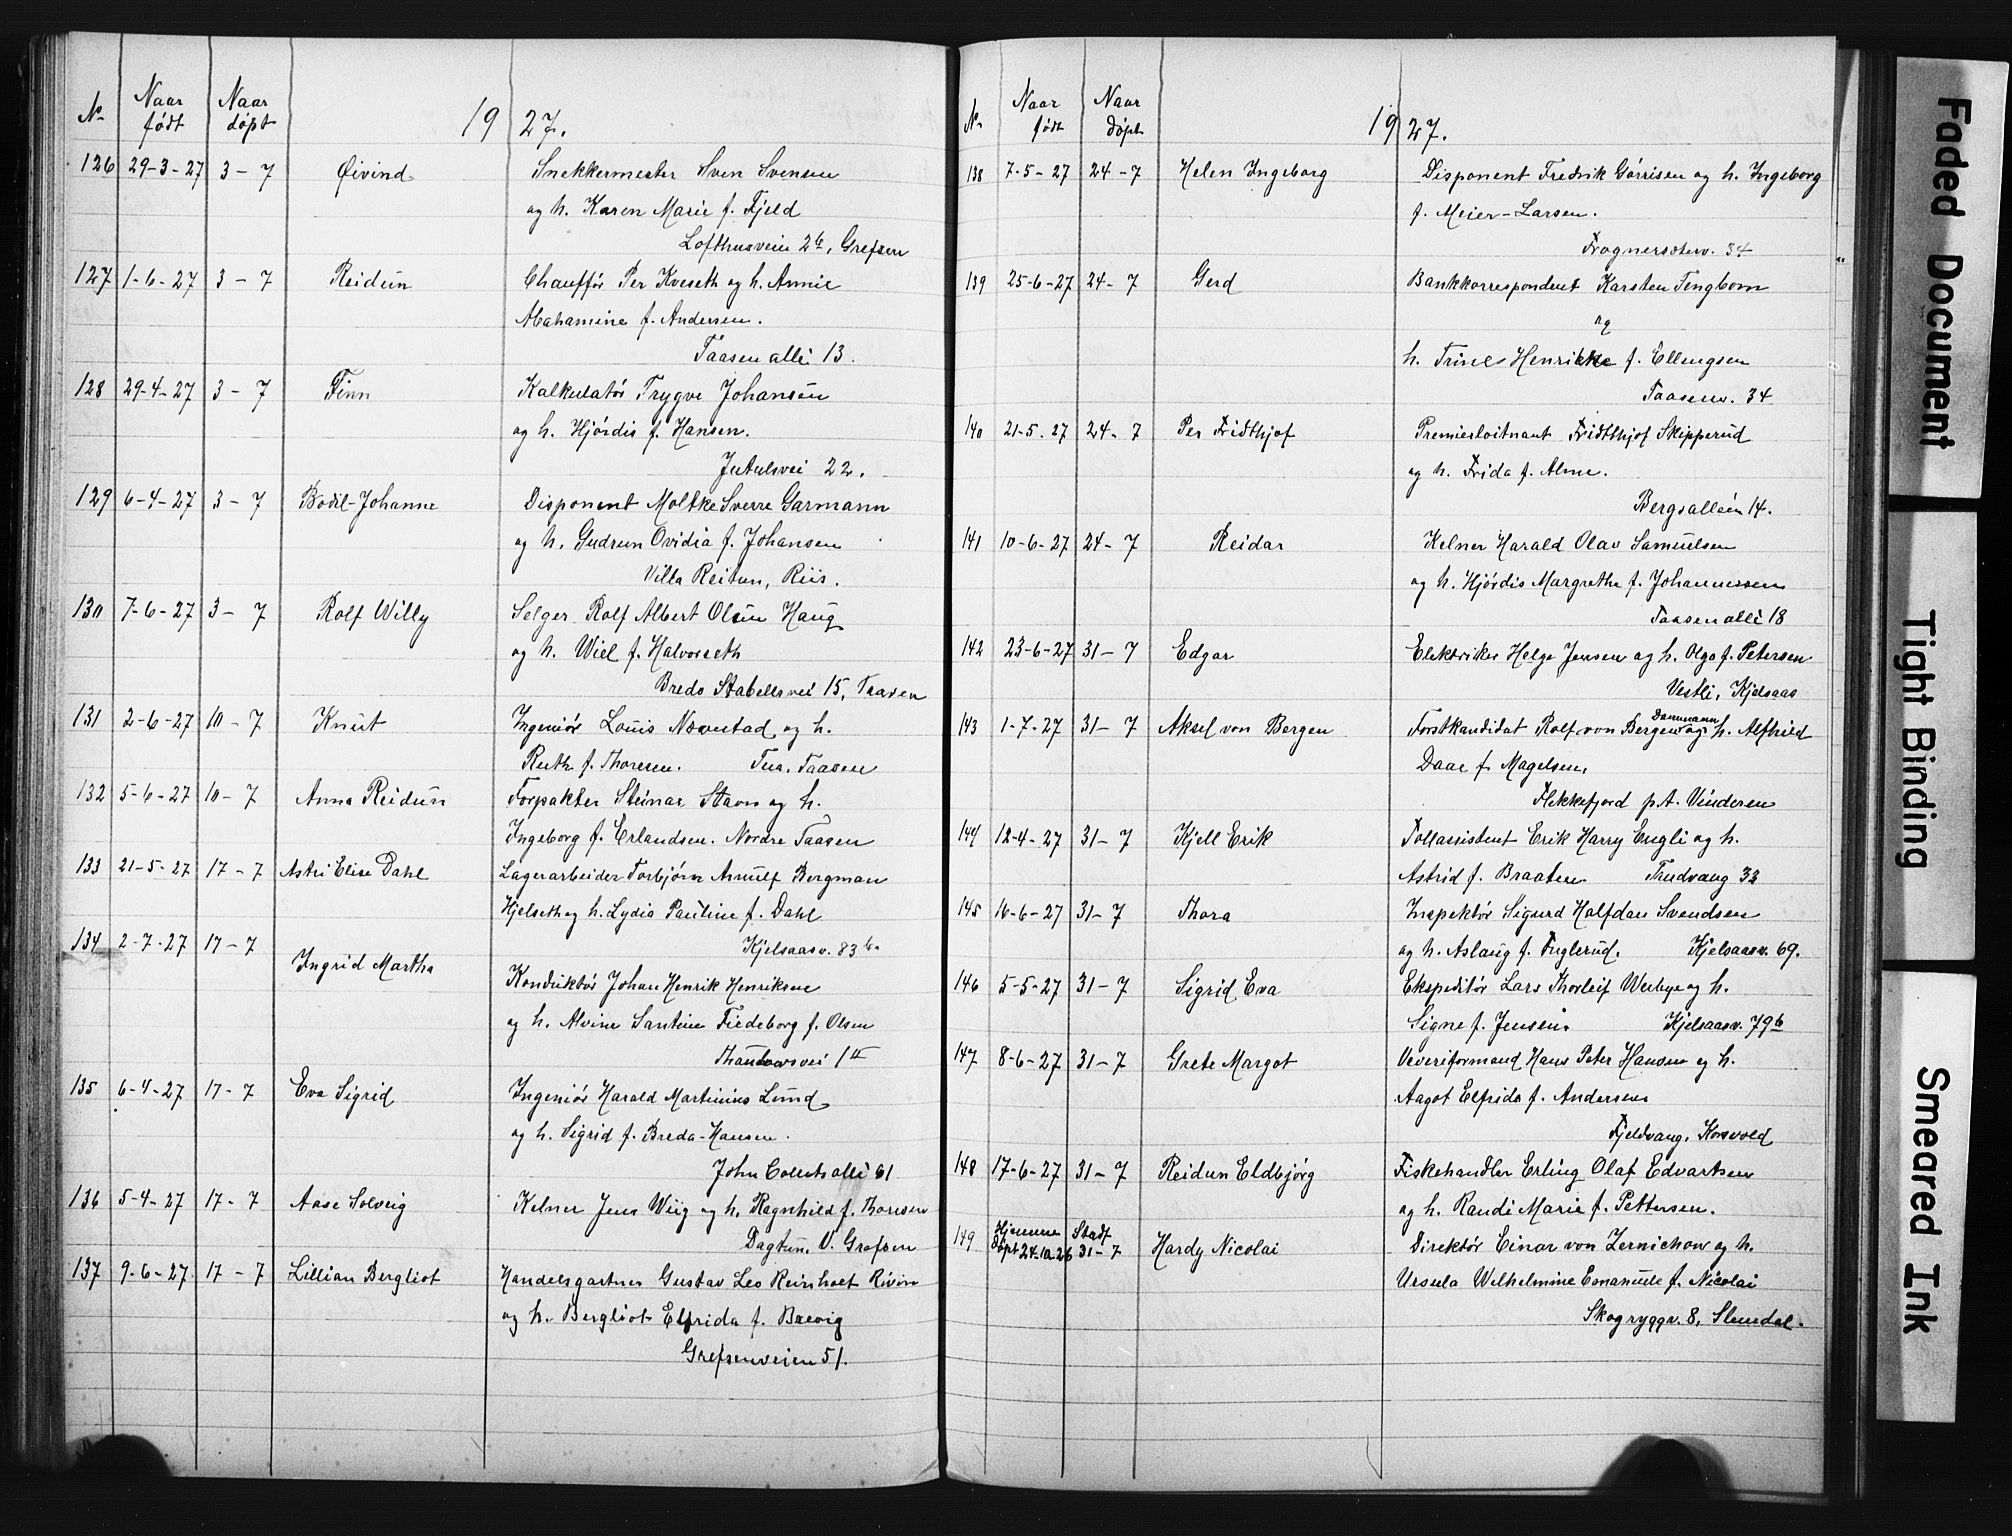 № Naar født Naar døpt 19 27.
126 29-3-27 3-7 Øivind Snekkermester Sven Svensen
og h. Karen Marie f. Fjeld
Lofthusveien 2b, Grefsen
127 1-6-27 3-7 Reidun Chauffør Per Kveseth og h. Annie
Abahamine f. Andersen.
Taasen allé 13.
128 29-4-27 3-7 Finn Kalkulatør Trygve Johansen
og h. Hjørdis f. Hansen.
Jutulsvei 22.
129 6-4-27 3-7 Bodil-Johanne Disponent Moltke Sverre Garmann
og h. Gudrun Ovidia f. Johansen
Villa Reitun, Riis.
130 7-6-27 3-7 Rolf Willy Selger Rolf Albert Olsen Haug
og h. Wiel f. Halvorseth
Bredo Stabells vei 15, Taasen
131 2-6-27 10-7 Knut Ingeniør Louis Navestad og h.
Ruth f. Thoresen. Tus. Taasen
132 5-6-27 10-7 Anna Reidun Forpakter Steinar Stavn og h.
Ingeborg f. Erlandsen. Nordre Taasen
133 21-5-27 17-7 Astri Elise Dahl Lagerarbeider Torbjørn Arnulf Bergman
Hjelseth og h. Lydia Pauline f. Dahl
Kjelsaasv. 83 b.
134 2-7-27 17-7 Ingrid Martha
Konduktør Johan Henrik Henriksen
og h. Alvine Santine Fredeborg f. Olsen
Thaulowsvei 1 II
135 6-4-27 17-7 Eva Sigrid Ingeniør Harald Martinius Lund
og h. Sigrid f. Breda-Hansen.
John Colletts allé 61
136 5-4-27 17-7 Aase Solveig Kelner Jens Wiig og h. Ragnhild f. Thoresen
Dagtun, V. Grefsen
137 9-6-27 17-7 Lillian Bergliot Handelsgartner Gustav Leo Reinholt
og h. Bergliot Elfrida f. Brevig
Grefsenveien 51.
№ Naar født Naar døpt 19 27.
138 7-5-27 24-7 Helen Ingeborg Disponent Fredrik Gørrisen og h. Ingeborg
f. Meier-Larsen.
Frognerseterv. 34
139 25-6-27 24-7 Gerd Bankkorrespondent Karsten Tengbom
og
h. Trine Henrikke f. Ellengsen
Taasenv. 34
140 21-5-27 24-7 Per Fridthjof Premierløitnant Fridtthjof Skipperud
og h. Frida f. Alme.
Bergsalléen 14.
141 10-6-27 24-7 Reidar Kelner Harald Olav Samuelsen
og h. Hjørdis Margrethe f. Johannessen
Taasen allé 18
142 23-6-27 31-7 Edgar Elektriker Helge Jensen og h. Olga f. Petersen
Vestli, Kjelsaas
143 1-7-27 31-7 Aksel von Bergen Forstkandidat Rolf von Bergen Dammann og h. Alfhild
Daae f. Magelsen,
Flekkefjord p.A. Vinderen
144 12-4-27 31-7 Kjell Erik Tollassistent Erik Harry Engli og h.
Astrid f. Braaten Trudvang 33
145 16-6-27 31-7 Thora Inspektør Sigurd Halfdan Svendsen
og h. Aslaug f. Fuglerud. Kjelsaasv. 69.
146 5-5-27 31-7 Sigrid Eva Ekspeditør Lars Thorleif Werbye og h.
Signe f. Jensen. Kjelsaasv. 79b
147 8-6-27 31-7 Grete Margot Veveriformand Hans Peter Hansen og h.
Aagot Elfrida f. Andersen
Fjeldvang, Korsvold
148 17-6-27 31-7 Reidun Eldbjørg Fiskehandler Erling Olaf Edvartsen
og h. Randi Marie f. Pettersen.
149 Hjemme døpt 24.10.26 Stadf 31-7 Hardy Nicolai Direktør Einar von Zernichow og h.
Ursula Wilhelmine Emanuele f. Nicolai
Skogryggv. 8, Slemdal.
Faded Document
Tight Binding
Smeared Ink